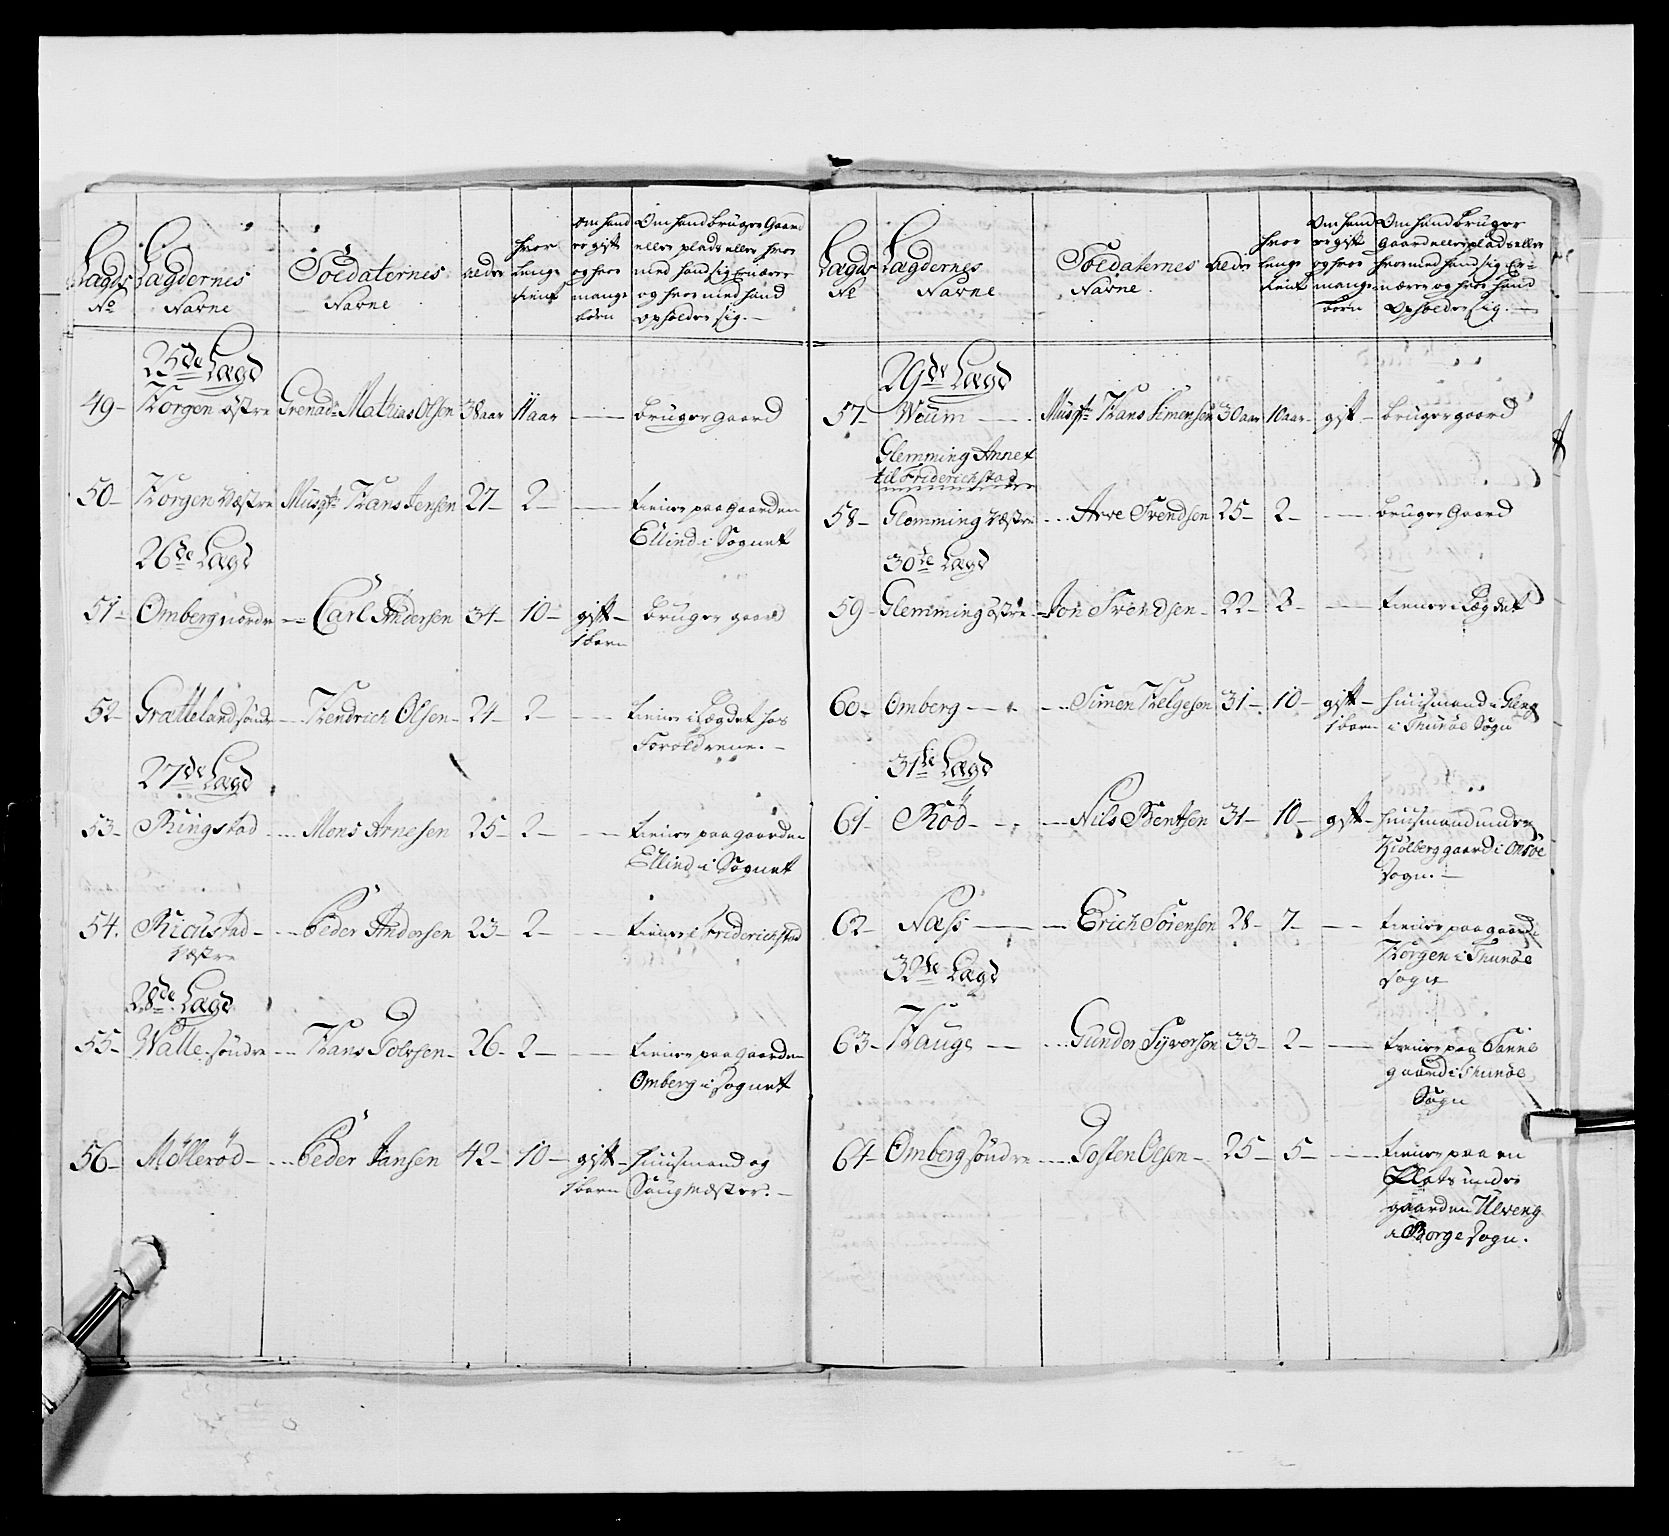 Lægds No
Lægdernes Navne
Soldaternes Navne
alder
hvor lenge tient
om hand er gift og hvor mange børn
Om hand bruger Gaard
eller plads eller hvor
med hand sig Ernærer
og hvor med hand
opholder sig.
25de Lægd
49- Torgen østre Grenad: Mathias Olsen 38 aar 11 aar - bruger gaard
50- Torgen Vestre Musqt: Hans Jensen 27- 2- - tiener paa gaarden
Ellind i Sognet
26de Lægd
51- Omberg nordre - Carl Andersen 34- 10- gift- bruger gaard
1 barn
52- Gratteland søndr - Hendrich Olsen- 24- 2- - tiener i Lægdet hos
Forældrene.-
27de Lægd
53- Ringstad - Mons Arnesen 25- 2- - tiener paa gaarden
Ellind i Sognet
54. Riaustad- - Peder Andersen 23- 2- - tiener i Friderichstad
Vestre
28de Lægd
55- Walle søndre - Hans Tolvsen- 26- 2- - tiener paa gaarden
Omberg i Sognet
56- Møllerød- - Peder Jansen 42- 10- gift- huusmand og
1 barn Saugmester.-
Lægds No
Lægdernes Navne
Soldaternes Navne.
alder
hvor lenge tient
om hand er gift og hvor mange børn
Om hand bruger
Gaard eller plads eller
hvor med hand sig Er-
nærer og hvor hand
opholder sig.-
29de Lægd
57- Weum - Musqt: Hans Simensen 30 aar 10 aar- gift- bruger gaard
Glemming Annex
til Friderichstad
58- Glemming Vestre - Arve Svendsen 25- 2- - bruger Gaard
30te Lægd
59- Glemming østre - Jon Svendsen- 22- 3- - tiener i Lægdet
60- Omberg - - Simen Helgesen 31- 10- gift- huusmand i Gleng
1 barn- i Thunøe Sogn
31te Lægd
61- Rød - - Nils Bentsen 31- 10- gift- huusmand under
Kiølberg gaard i Onsøe
Sogn.-
62- Næss - Erich Sörensen 28- 7- - tiener paa gaard
Torgen i Thunøe
Sogn
32te Lægd
63- Hauge - Gunder Syversen 33- 2- - tiener paa Tanne
gaard i Thunøe
Sogn
64- Omberg søndre - Tosten Olsen- 25- 5- - tiener paa en
Plats under
gaarden Ulveng
i Borge Sogn.